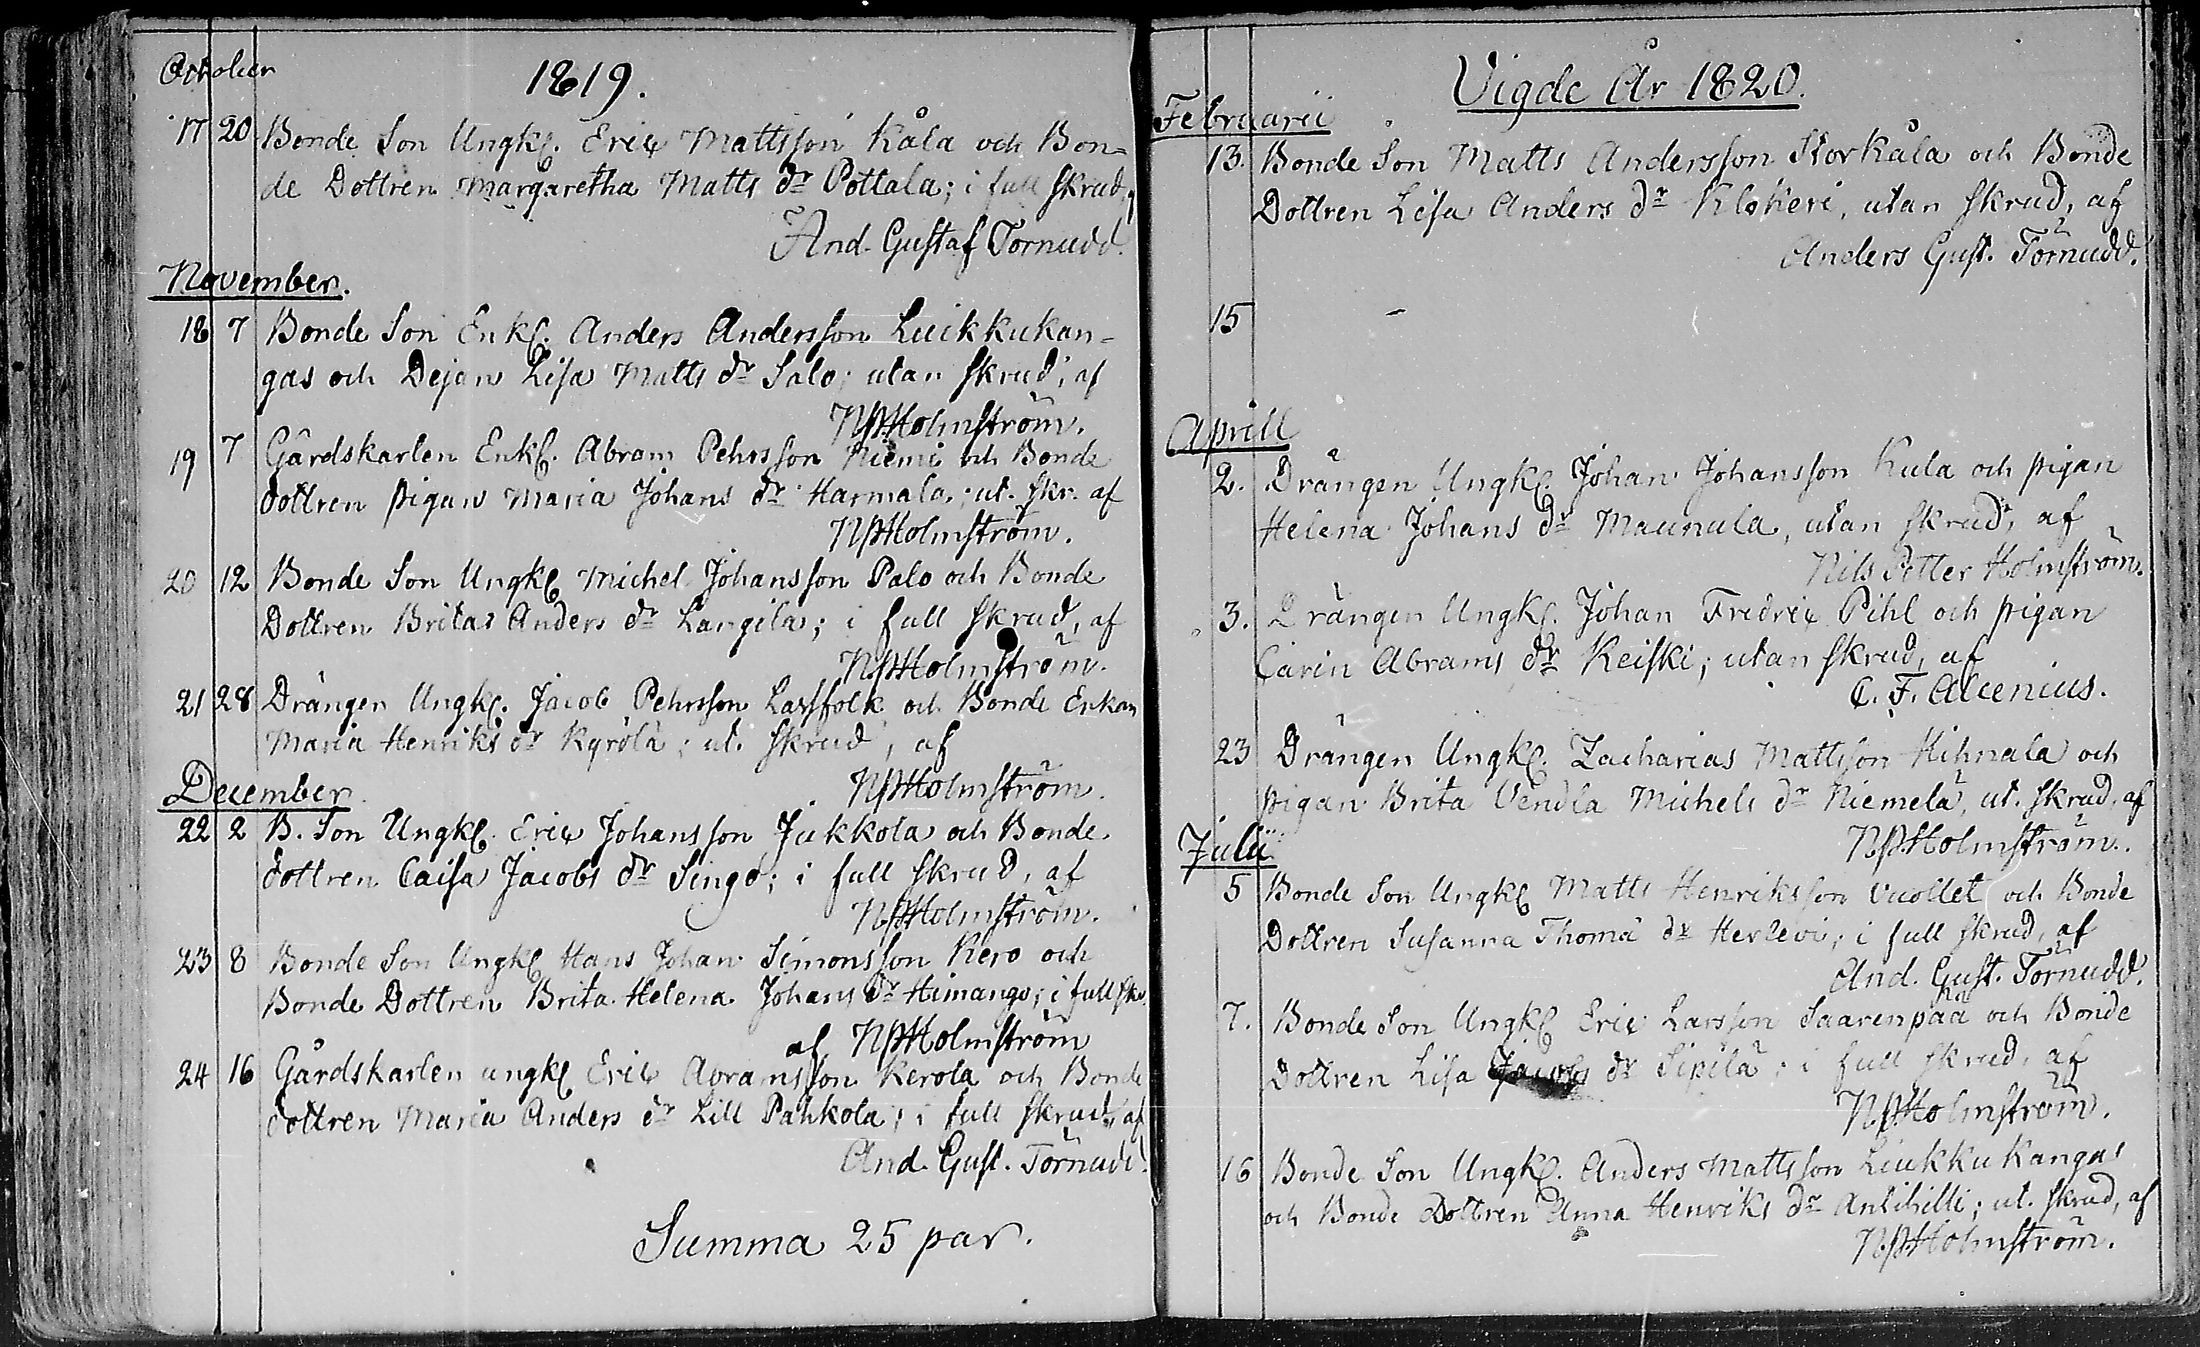 October
1819.
17 20 Bonde Son Ungkl. Eric Mattsson Kåla och Bon=
de Dottren Margaretha Matts dr Pottala; i full skrud,
And. Gustaf Tornudd.
November.
18 7 Bonde Son Enkl. Anders Andersson Luikkukan=
gas och Dejan Lisa Matts dr Salo; utan skrud, af
NPHolmström.
19 7 Gårdskarlen Enkl. Abram Pehrsson Niemi och Bonde
dottren pigan Maria Johans dr Harmala,; ut. skr. af
NPHolmström.
20 12 Bonde Son Ungkl Michel Johansson Palo och Bonde
Dottren Brita Anders dr Langila; i full skrud, af
NPHolmström.
21 28 Drängen Ungkl. Jacob Pehrsson Lassfolk och Bonde Enkan
Maria Henriks dr Kyrölä; ut. skrud, af
NPHolmström.
December
22 2 B. Son Ungkl. Eric Johansson Jukkola och Bonde
dottren Caisa Jacobs dr Singo; i full skrud, af
NPHolmström.
23 8 Bonde Son Ungkl Hans Johan Simonsson Kero och
Bonde Dottren Brita Helena Johans dr Himango; i full skr.
af NPHolmström
24 16 Gårdskarlen ungkl Eric Abramsson Kerola och Bonde
dottren Maria Anders dr Lill Pahkola; i full skrud, af
And. Gust. Törnudd.
Summa 25 par.
Vigde År 1820.
Februarii
13. Bonde Son Matts Andersson Storkåla och Bonde
Dottren Lisa Anders dr Klokeri, utan skrud, af
Anders Gust. Törnudd.
15
Aprill
2. Drängen Ungkl. Johan Johansson Kula och pigan
Helena Johans dr Maunula, utan skrud, af
Nils Petter Holmström.
3. Drängen Ungkl. Johan Fredric Pihl och pigan
Carin Abrams dr Keiski; utan skrud, af
C. F. Alcenius.
23 Drängen Ungkl. Zacharias Mattsson Hihnala och
pigan Brita Vendla Michels dr Niemelä, ut. skrud, af
NPHolmström.
Julii
5 Bonde Son Ungkl Matts Henriksson Vuollet och Bonde
Dottren Susanna Thomä dr Herlevi; i full skrud, af
And. Gust. Törnudd.
7. Bonde Son Ungkl Eric Larsson Saarenpää och Bonde
Dottren Lisa Jacobs dr Sipilä; i full skrud, af
NPHolmström.
16 Bonde Son Ungkl. Anders Mattsson Liukkukangas
och Bonde Dottren Anna Henriks dr Anttihilli; ut. skrud, af
NPHolmström.